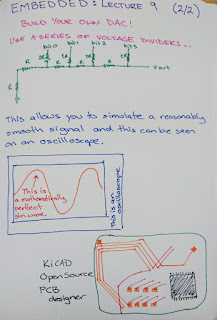 EMBEDDED: LECTURE 9 (2/2)
BUILD YOUR OWN DAC!
USE A SERIES OF VOLTAGE DIVIDERS...
bit0 bit1 bit2 bit3
2R 2R 2R 2R
R R R R Vout
R
This allows you to simulate a reasonably
smooth signal and this can be seen
on an oscilloscope.
This is
a mathematically
perfect
sin wave.
This is an
oscilloscope
KiCAD
Open Source
PCB
designer